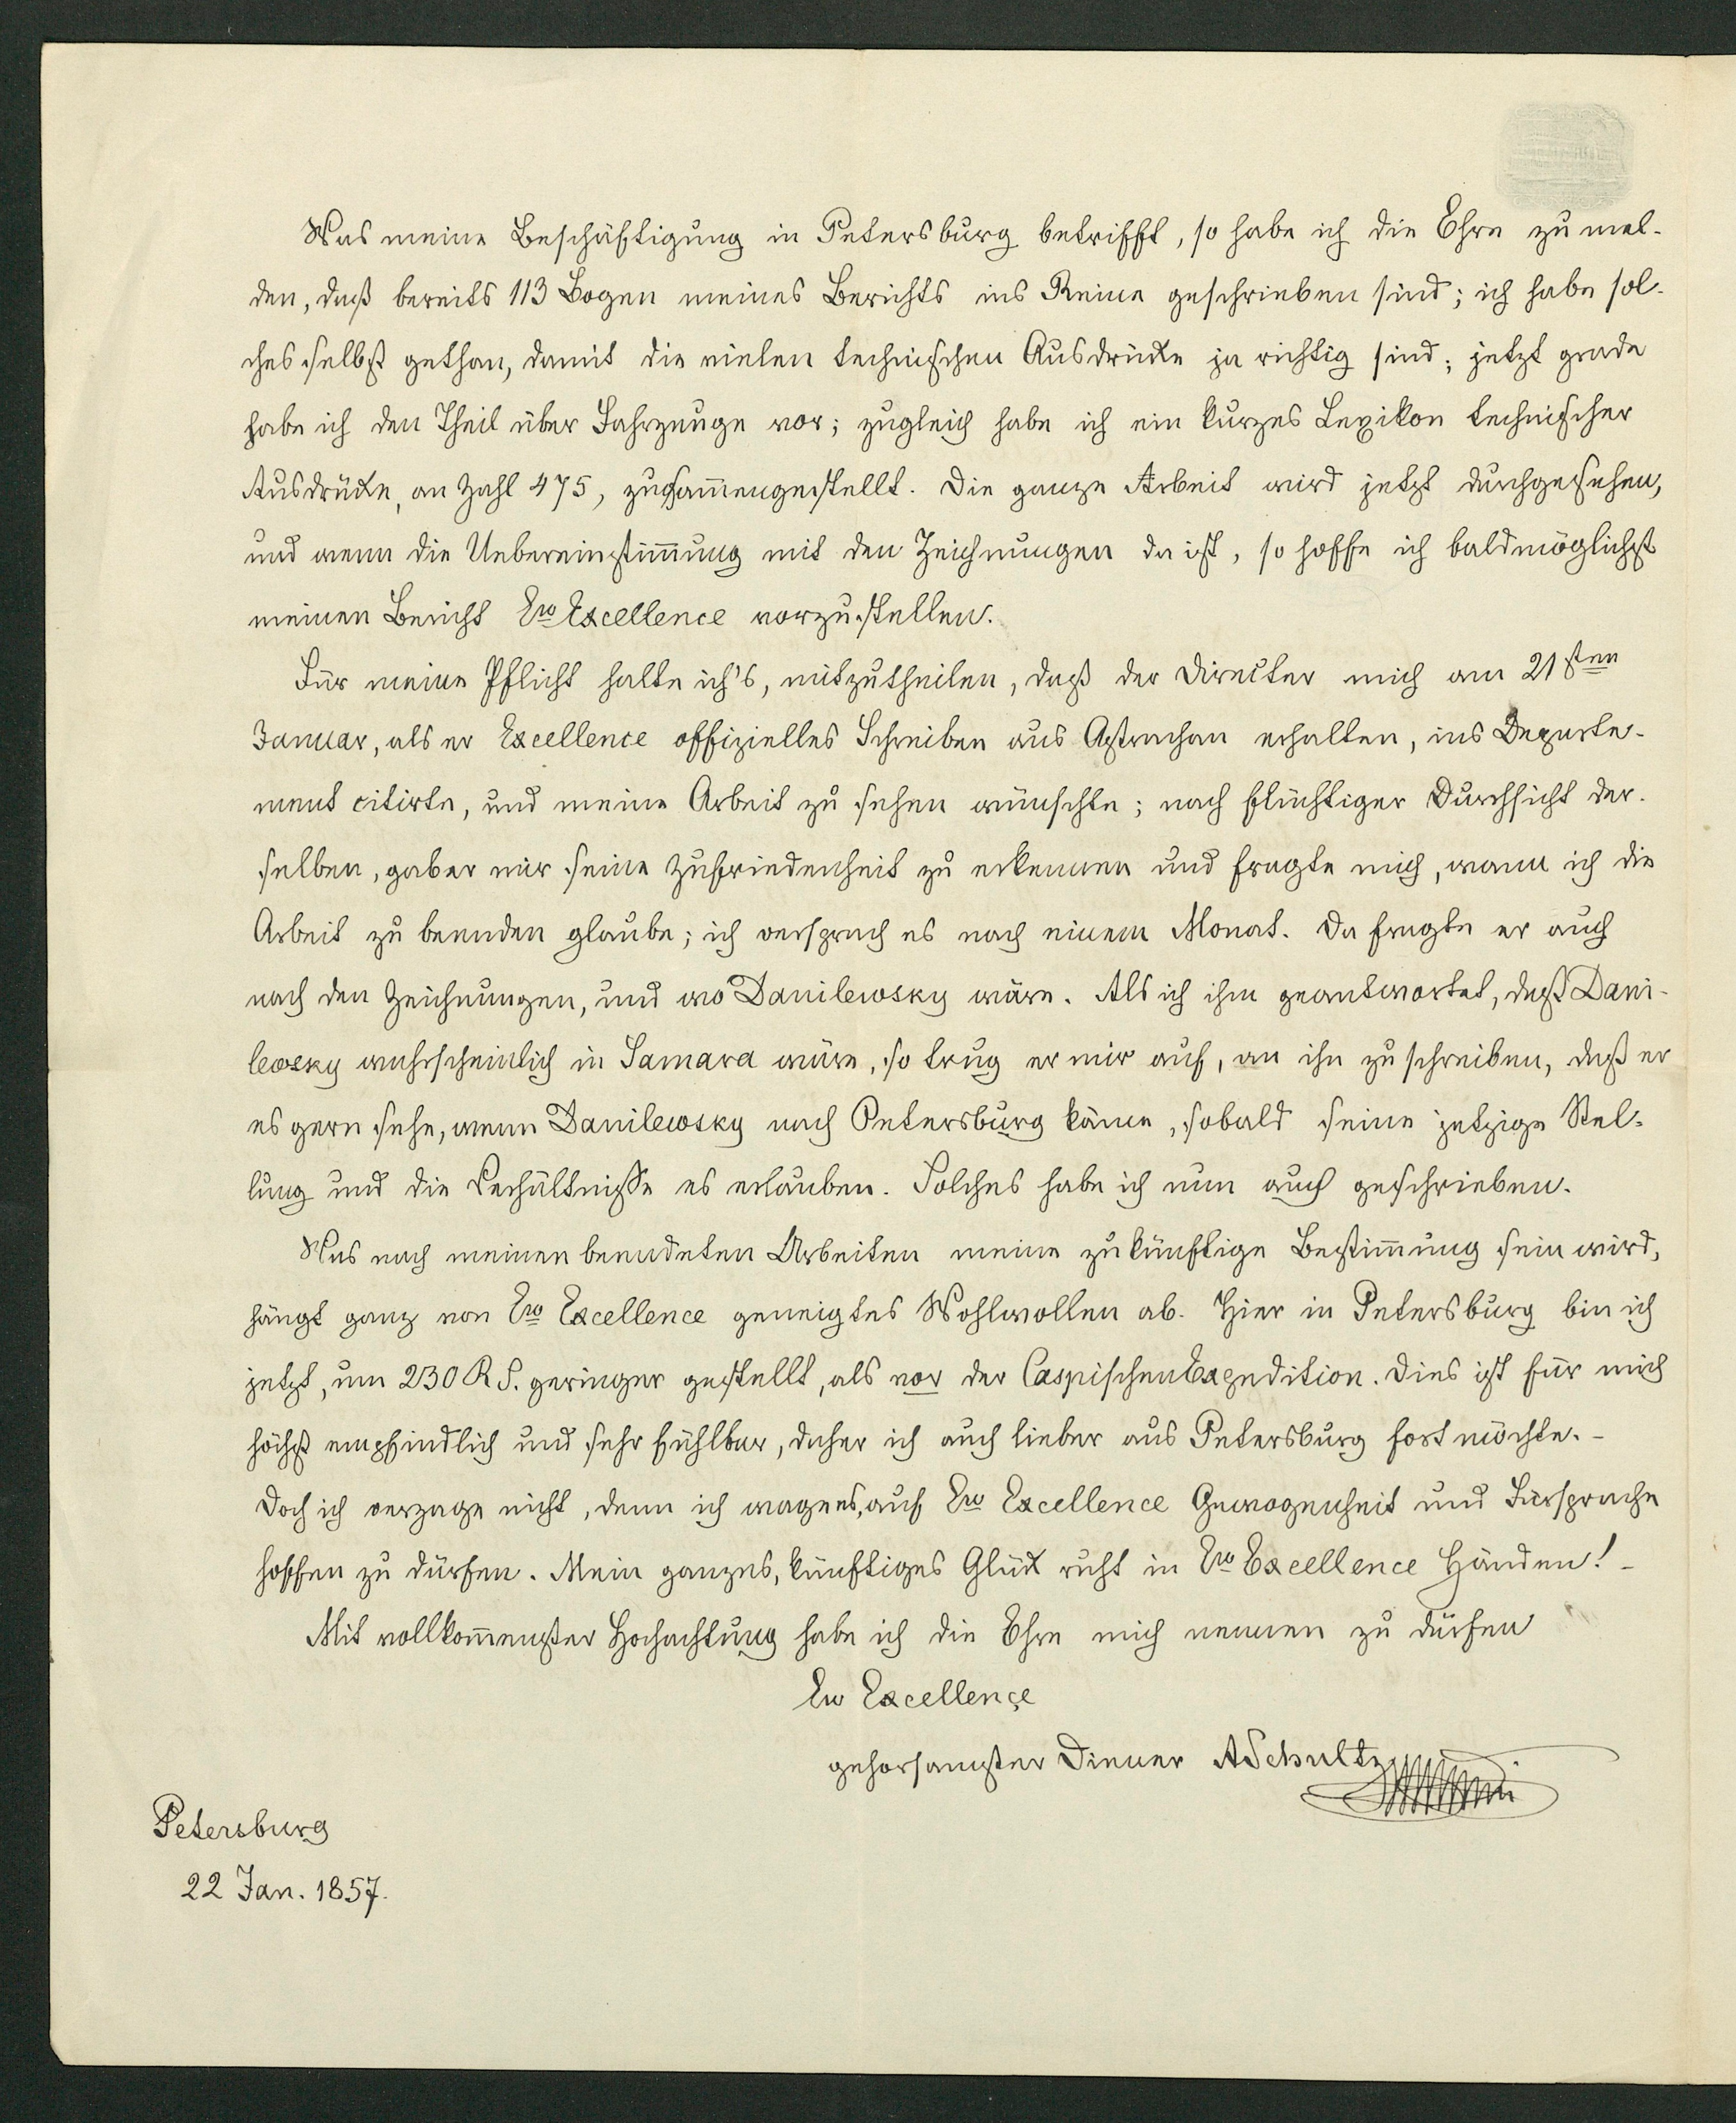 Was meine Beschäftigung in Petersburg betrifft, so habe ich die Ehre zu mel-
den, daß bereits 113 Bogen meines Berichts ins Reine geschrieben sind; ich habe sol-
ches selbst gethan, damit die vielen technischen Ausdrücke ja richtig sind; jetzt grade
habe ich den Theil über Fahrzeuge vor; zugleich habe ich ein kurzes Lexikon technischer
Ausdrücke, an Zahl 475, zusam̅engestellt. Die ganze Arbeit wird jetzt durchgesehen,
und wenn die Uebereinstim̅ung mit den Zeichnungen da ist, so hoffe ich baldmöglichst
meinen Bericht Ew Excellence vorzustellen.
Für meine Pflicht halte ich's, mitzutheilen, daß der Direcktor mich am 21sten
Januar, als er Excellence offizielles Schreiben aus Astrachan erhalten, ins Departe-
ment citirte, und meine Arbeit zu sehen wünschte; nach flüchtiger Durchsicht der-
selben, gab er mir seine Zufriedenheit zu erkennen und fragte mich, wann ich die
Arbeit zu beenden glaube; ich versprach es nach einem Monat. Da fragte er auch
nach den Zeichnungen, und wo Danilewsky wäre. Als ich ihm geantwortet, daß Dani-
lewsky wahrscheinlich in Samara wäre, so trug er mir auf, an ihn zu schreiben, daß er
es gern sehe, wenn Danilewsky nach Petersburg käme, sobald seine jetzige Stel-
lung und die Verhältnisse es erlauben. Solches habe ich nun auch geschrieben.
Was nach meinen beendeten Arbeiten meine zukünftige Bestim̅ung sein wird,
hängt ganz von Ew Excellence geneigtes Wohlwollen ab. Hier in Petersburg bin ich
jetzt, um 230 R S. geringer gestellt, als vor der Caspischen Expedition. Dies ist für mich
höchst empfindlich und sehr fühlbar, daher ich auch lieber aus Petersburg fort möchte. –
Doch ich verzage nicht, denn ich wage es, auf Ew Excellence Gewogenheit und Fürsprache
hoffen zu dürfen. Mein ganzes, künftiges Glück ruht in Ew Excellence Händen! –
Mit vollkom̅enster Hochachtung habe ich die Ehre mich nennen zu dürfen
Ew Excellence
gehorsamster Diener ASchultz
Petersburg
22 Jan. 1857.